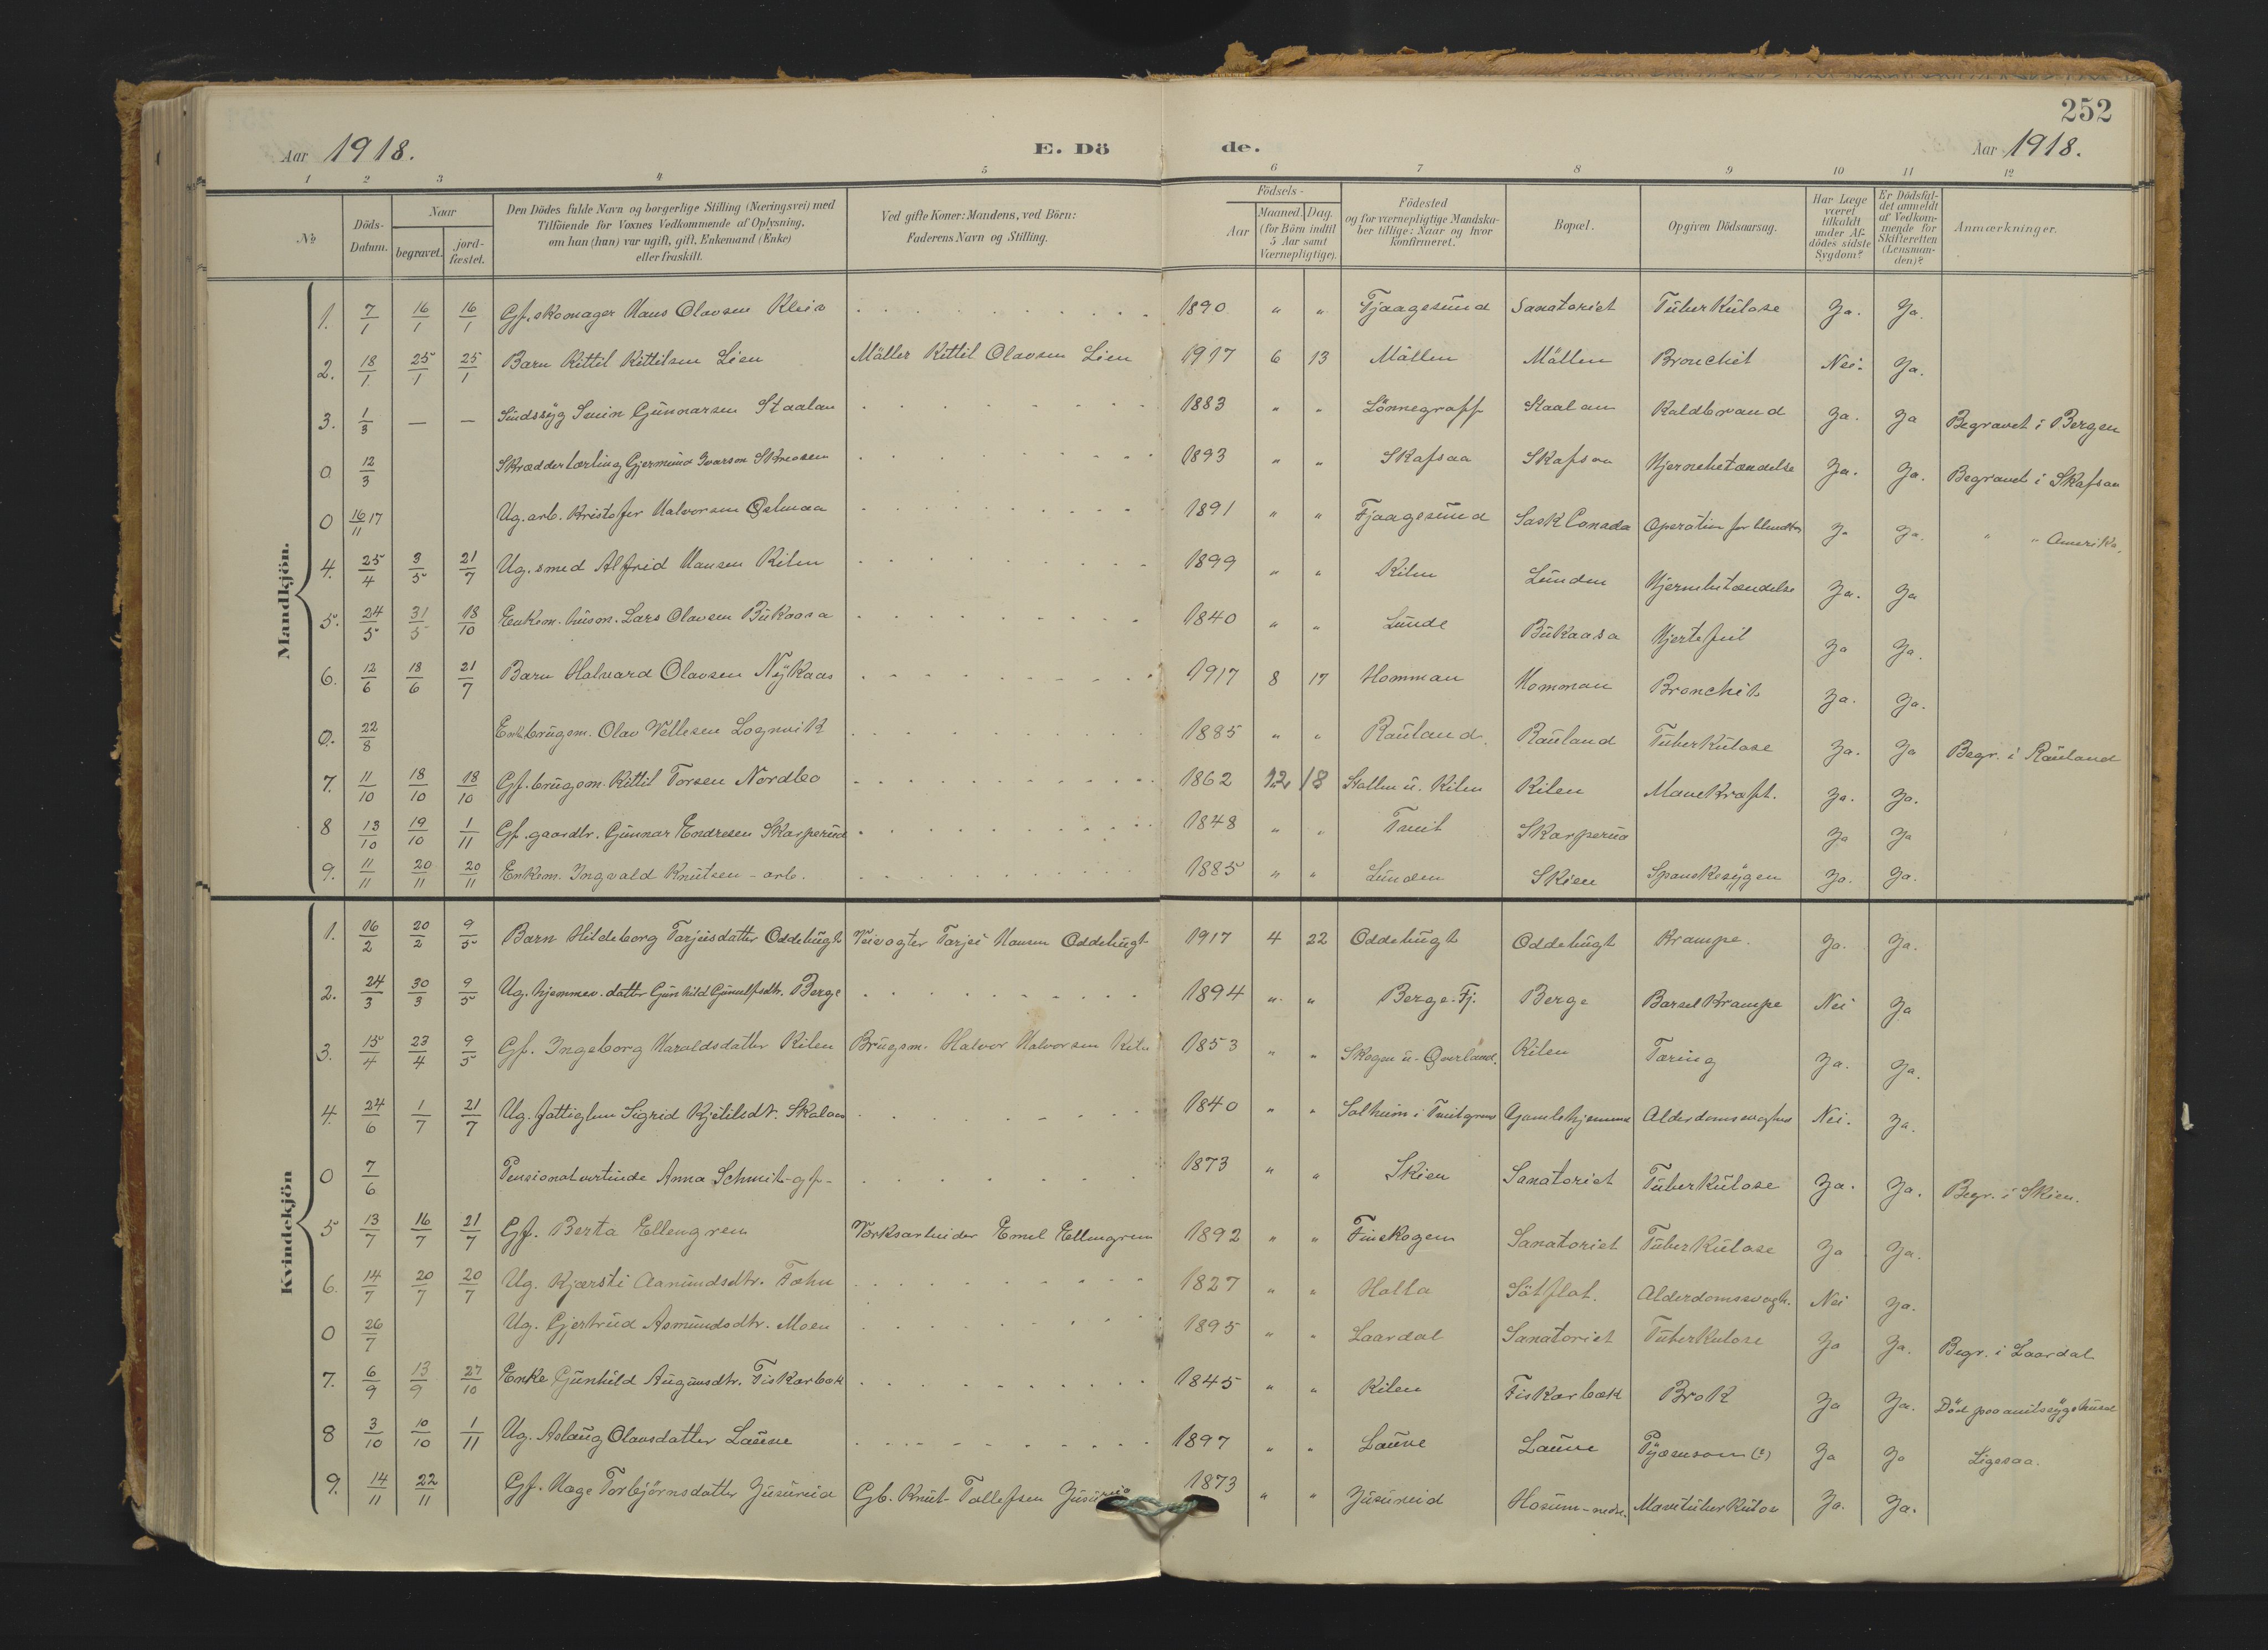 252
Aar 1918.
E. Dö de.
Aar 1918.
1 2 3 4 5 6 7 8 9 10 11 12
No
Döds-Datum.
Naar
begravet.
jord-fæstet.
Den Dödes fulde Navn og borgerlige Stilling (Næringsvei) med
Tilföiende for Voxnes Vedkommende af Oplysning,
om han (hun) var ugift, gift, Enkemand (Enke)
eller fraskilt.
Ved gifte Koner: Mandens, ved Börn:
Faderens Navn og Stilling.
Födsels-
Aar
Maaned. Dag.
(for Börn indtil
5 Aar samt
Værnepligtige).
Födested
og for værnepligtige Mandska-
ber tillige: Naar og hvor
konfirmeret.
Bopæl.
Opgiven Dödsaarsag.
Har Læge
været
tilkaldt
under Af-
dödes sidste
Sygdom?
Er Dödsfal-
det anmeldt
af Vedkom-
mende for
Skifteretten
(Lensman-
den)?
Anmærkninger.
Mandkjön.
1. 7/1 16/1 16/1 Gf. skomager Hans Olavsen Kleiv 1890 " " Fjaagesund Sanatoriet Tuberkulose Ja. Ja.
2. 18/1 25/1 25/1 Barn Kittil Kittilsen Lien Möller Kittil Olavsen Lien 1917 6 13 Möllen Möllen Bronchit Nei. Ja.
3. 1/3 — — Sindssyg Svein Gunnarsen Staalan 1883 " " Lönnegraff Staalan Koldbrand Ja. Ja Begravet i Bergen
0 12/3 Skrædderlærling Gjermund Ivarson 1893 " " Skafsaa Skafsaa Hjernebetændelse Ja. Ja. Begravet i Skafsaa
0 16/11 17 Ug. arb. Kristofer Halvorsen 1891 " " Fjaagesund Sask Canada Operation for Ja Ja. " " Amerika.
4. 25/4 3/5 21/7 Ug. smed Alfrid Hansen Kilen 1899 " " Kilen Lunden Hjernebetændelse Ja. Ja
5. 24/5 31/5 18/10 Enkem. husm. Lars Olavsen Bukaasa 1840 " " Lunde Bukaasa Hjertefeil Ja Ja.
6. 12/6 18/6 21/7 Barn Halvard Olavsen Nykaas 1917 8 17 Homman Homman Bronchit Ja. Ja.
0. 22/8 brugsm. Olav Vellesen Lognvik 1885 " " Rauland. Rauland Tuberkulose Ja. Ja Begr. i Rauland
7. 11/10 18/10 18/10 Gf. brugsm. Kittil Torsen Nordbø 1862 12 18 Stallen u. Kilen Kilen Mavekræft. Ja. Ja.
8 13/10 19/10 1/11 Gf. gaardbr. Gunnar Endresen Skarperud 1848 " " Tveit Skarperud Ja Ja
9. 11/11 20/11 20/11 Enkem. Ingvald Knutsen - arb. 1885 " " Lunden Skien Spanskesygen Ja. Ja.
Kvindekjön
1. 16/2 20/2 9/5 Barn Hildeborg Tarjeisdatter Oddehugt Veivogter Tarjei Hansen Oddehugt 1917 4 22 Oddehugt Oddehugt Krampe. Ja. Ja.
2. 24/3 30/3 9/5 Ug. hjemmev. datter Gunhild Gunulfsdtr. Berge 1894 " " Berge. Fj. Berge Barselkrampe Nei Ja
3. 15/4 23/4 9/5 Gf. Ingeborg Haraldsdatter Kilen Brugsm. Halvor Halvorsen Kilen 1853 " " Skogen u. Qverland. Kilen Tæring Ja. Ja.
4. 24/6 1/7 21/7 Ug. fattiglem Sigrid Kjetilsdtr. 1840 " " Solheim i Gamlehjemmet Alderdomssvaghed Nei. Ja.
0 7/6 Pensionatvertinde Anna Schmit - gf - 1873 " " Skien Sanatoriet Tuberkulose Ja. Ja. Begr. i Skien.
5 13/7 16/7 21/7 Gf. Berta Ellengren Verksarbeider Emil Ellengren 1892 " " Finskogen Sanatoriet Tuberkulose Ja Ja.
6. 14/7 20/7 20/7 Ug. Kjærsti Aanundsdtr. 1827 " " Holla Alderdomssvagh. Nei Ja.
0 26/7 Ug. Gjertrud Asmundsdtr. Moen 1895 " " Laardal Sanatoriet Tuberkulose Ja Ja. Begr. i Laardal
7. 6/9 13/9 27/10 Enke Gunhild Augunsdtr. Fiskarbæk 1845 " " Kilen Fiskarbæk Brok Ja Ja. Död paa amtssygehuset
8 3/10 10/10 1/11 Ug. Aslaug Olavsdatter Lauve 1897 " " Lauve Lauve (?) Ja Ja Ligesaa.
9. 14/11 22/11 Gf. Hæge Torbjörnsdatter Jusureid Gb. Knut Tallefsen Jusureid 1873 " " Jusureid Hosum - nedre. Mavetuberkulose Ja. Ja.